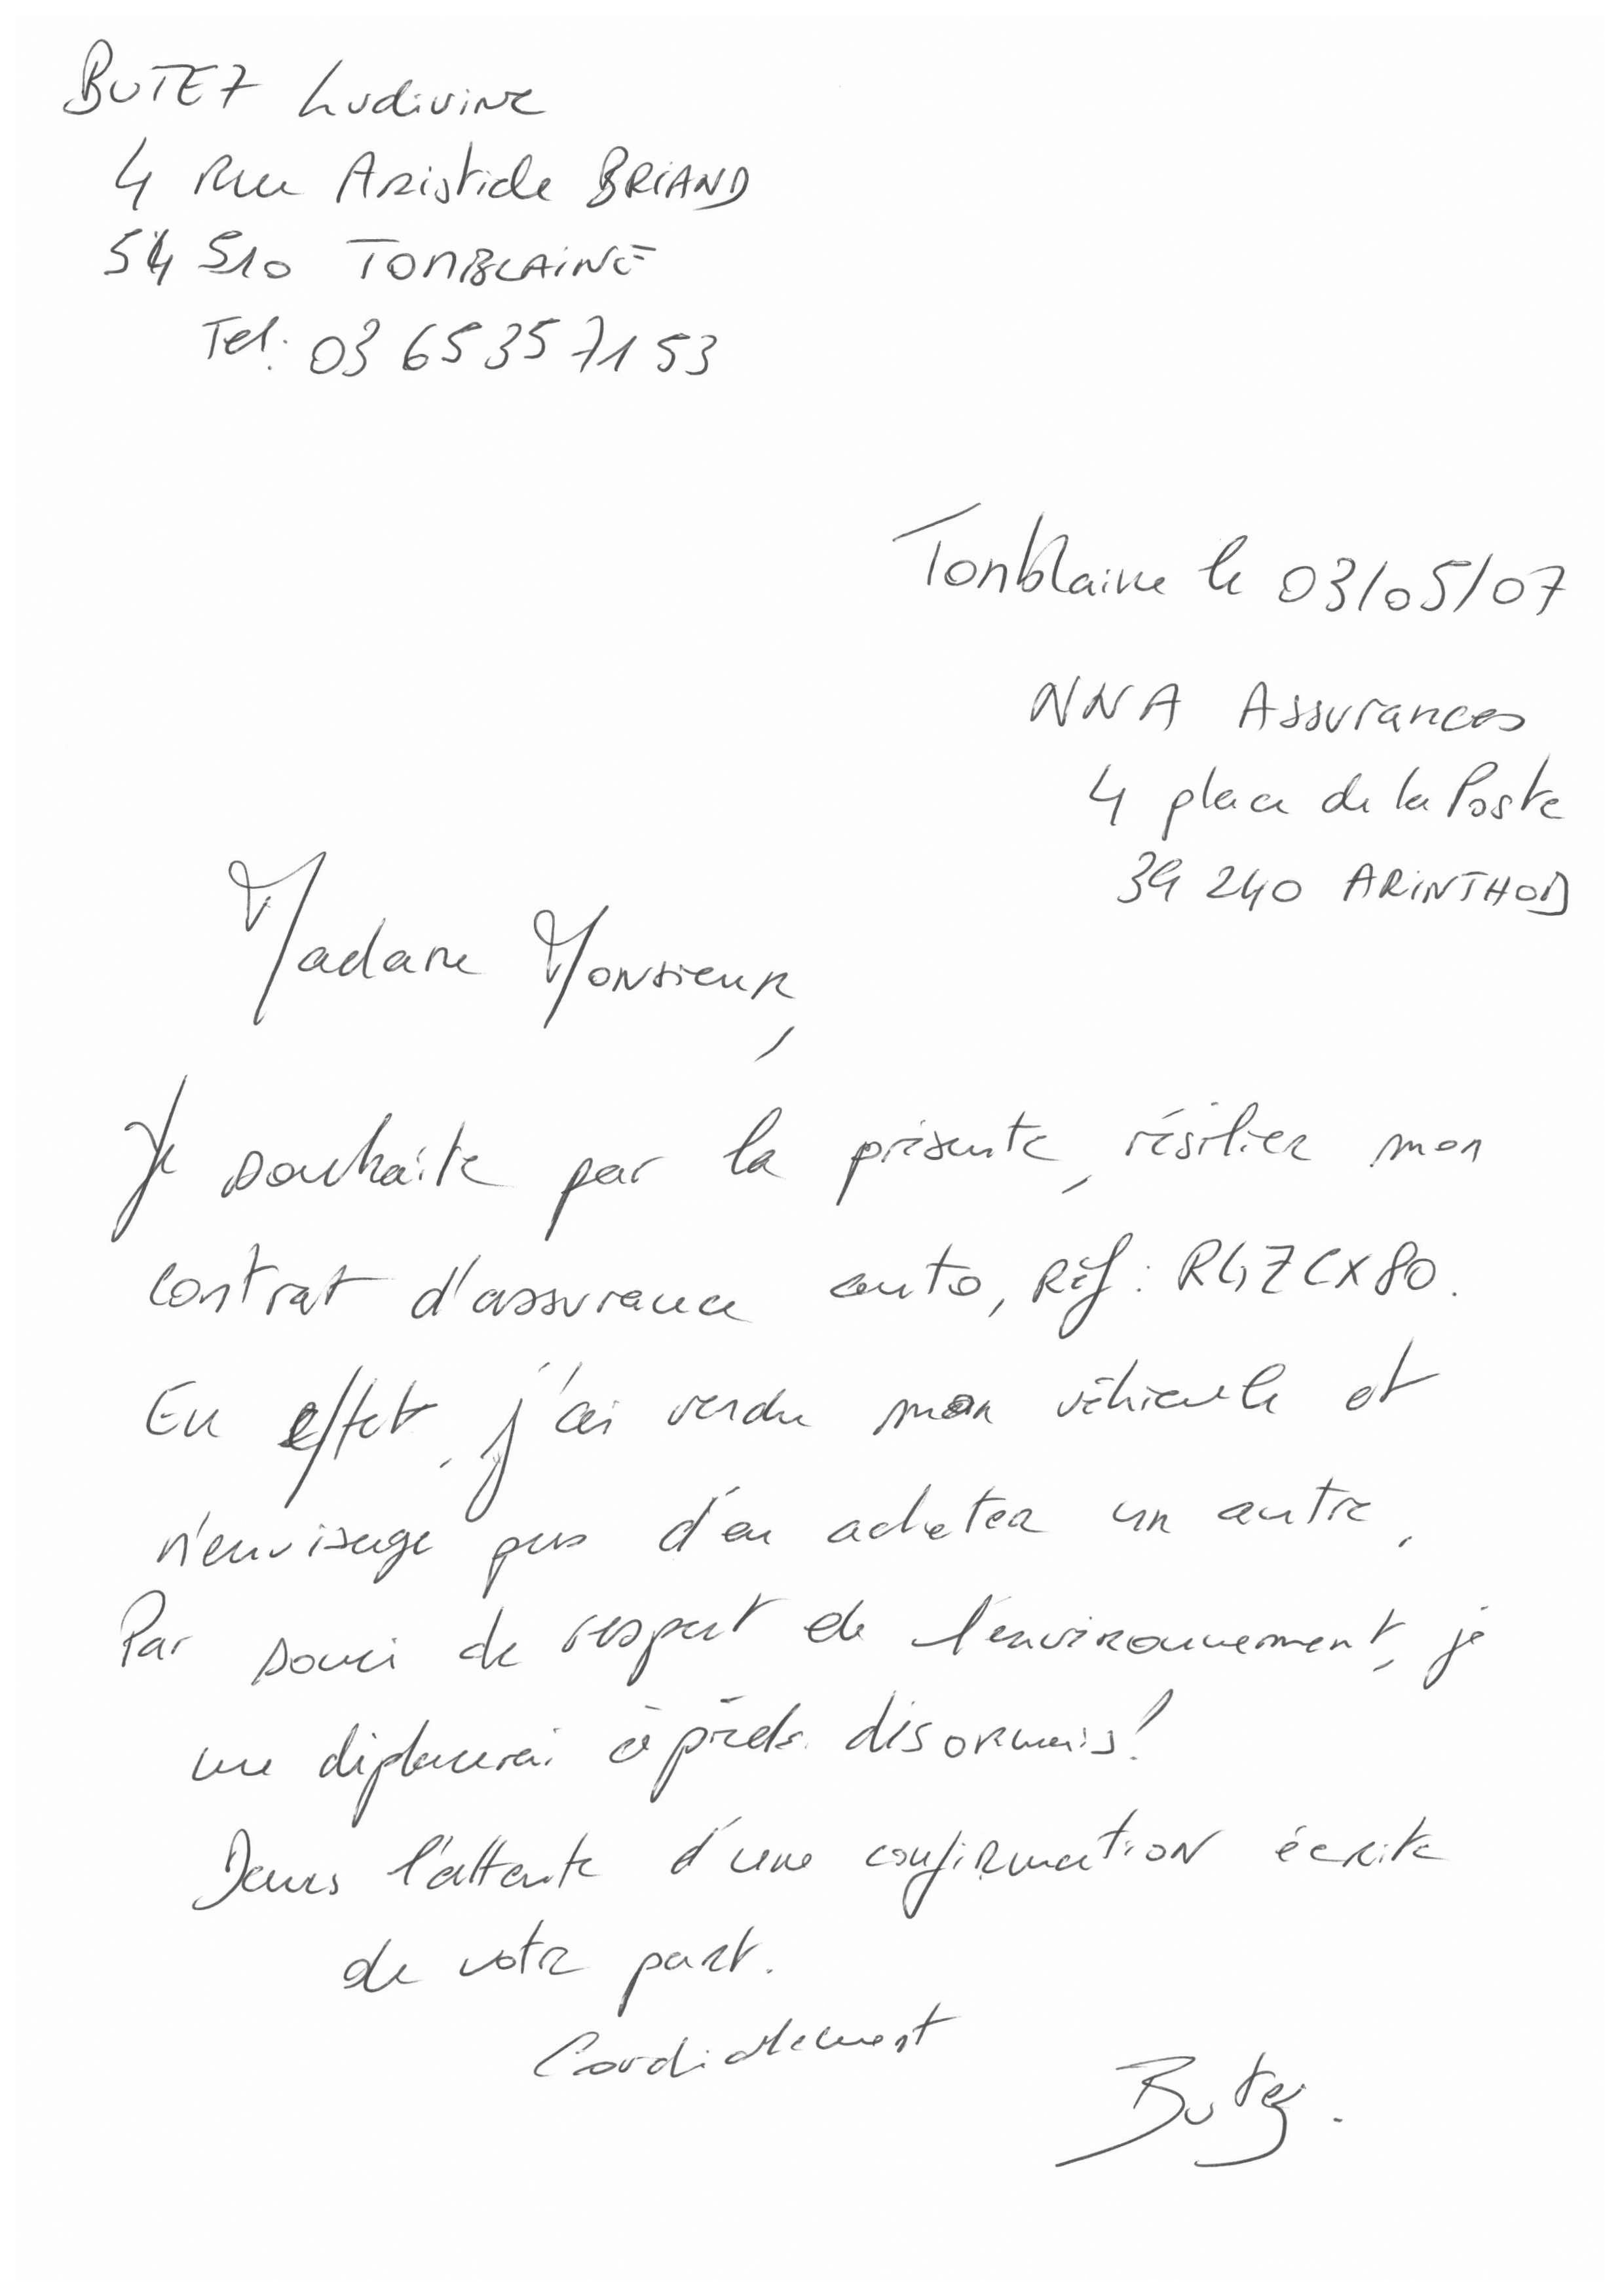 BUTEZ Ludivine
4 Rue Aristide BRIAND
54 510 TOMBLAINE
Tel: 03 65 35 71 53
Tonblaine le 03/05/07
NNA Assurances
4 place de la Poste
39 240 ARINTHOD
Madame Monsieur,
Je souhaite par la présente, résilier mon
contrat d'assurance auto, Réf : RGZCX80.
En effet, j'ai vendu mon véhicule et
n'envisage pas d'en acheter un autre.
Par souci de respect de l'environnement, je
me déplacerai à pieds désormais!
Dans l'attente d'une confirmation écrite
de votre part.
Cordialement
Butez.